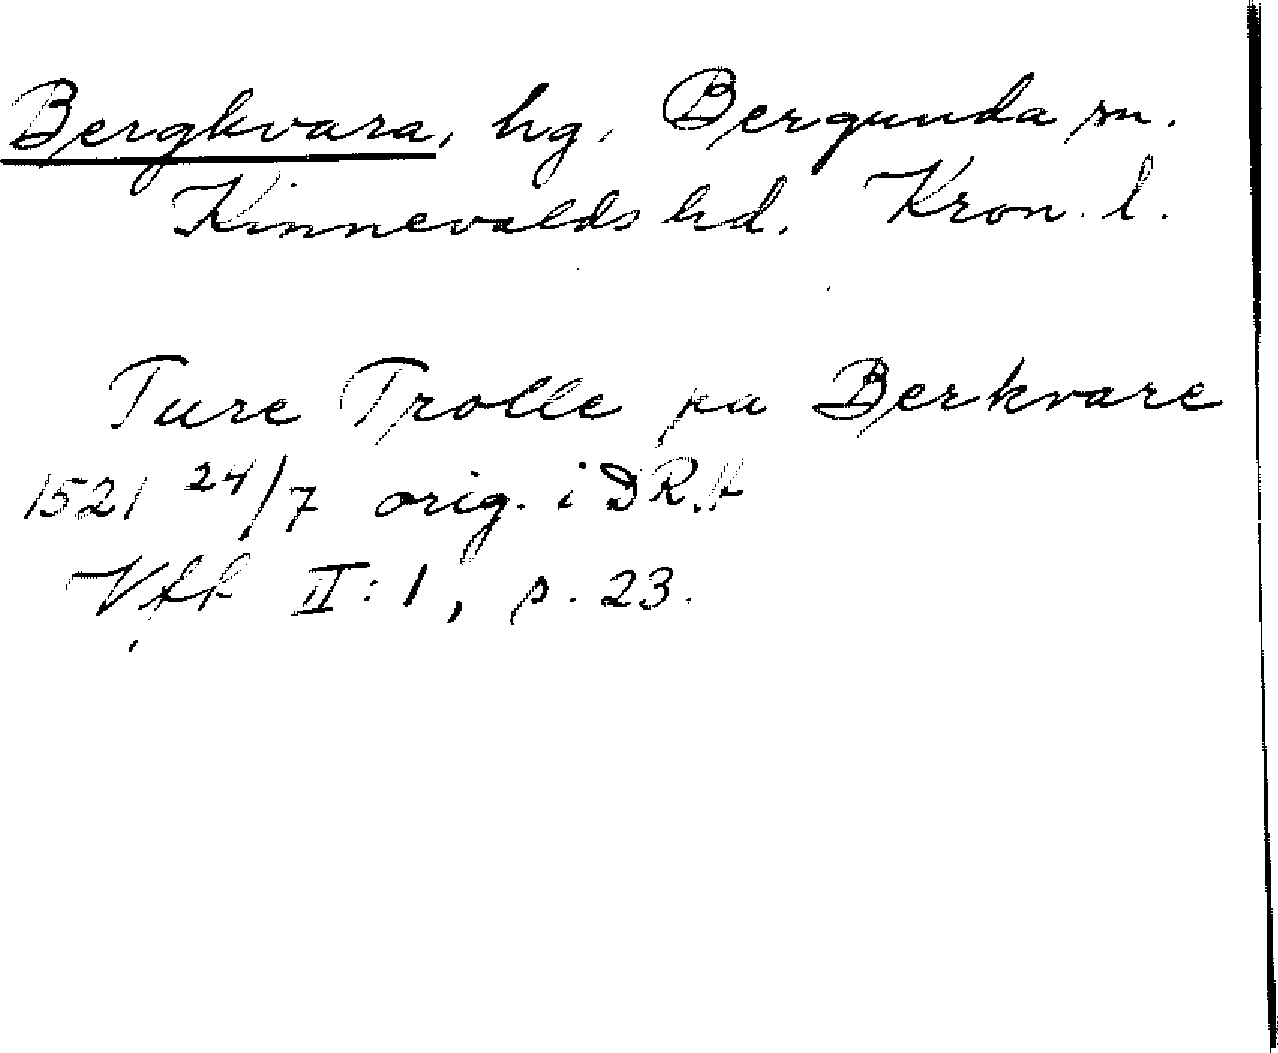 Bergkvara, hg. Bergunda sn.
Kinnevalds hd. Kron. l.
Ture Trolle pa Berkvare
1521 24/7 orig. i DRA
II:1, s. 23.